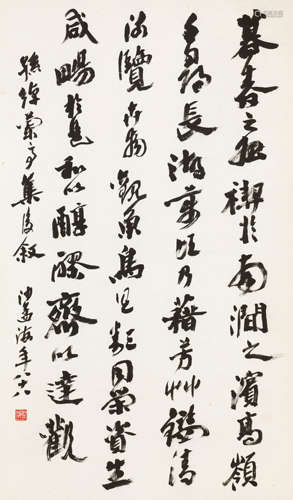 暮春之始禊於南澗之濱高嶺
千尋長湖萬頃乃藉芳艸鑑清
流覽卉物觀魚鳥具類同榮資生
咸暢於是和以醇醪齊以達觀
孫綽蘭亭集後敘 沙孟海年八十八